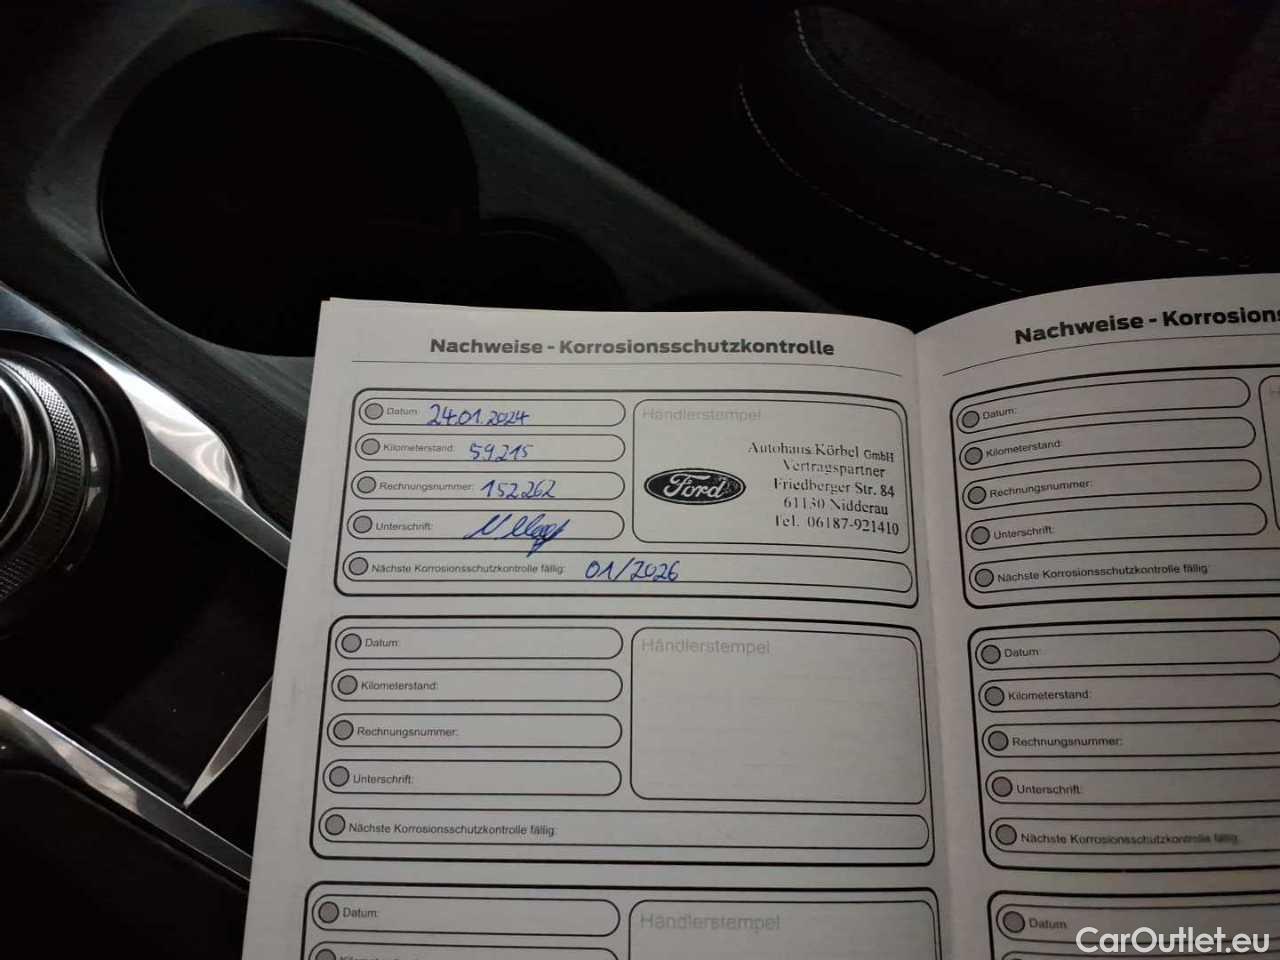 Nachweise - Korrosionsschutzkontrolle
Datum: 24.01.2024
Kilometerstand: 59215
Rechnungsnummer: 152262
Unterschrift:
Nächste Korrosionsschutzkontrolle fällig: 01/2026
Händlerstempel
Ford
Autohaus Körbel GmbH
Vertragspartner
Friedberger Str. 84
61130 Nidderau
Tel. 06187-921410
Datum:
Kilometerstand:
Rechnungsnummer:
Unterschrift:
Nächste Korrosionsschutzkontrolle fällig:
Händlerstempel
Datum:
Händlerstempel
Nachweise - Korrosions
Datum:
Kilometerstand:
Rechnungsnummer:
Unterschrift:
Nächste Korrosionsschutzkontrolle fällig:
Datum:
Kilometerstand:
Rechnungsnummer:
Unterschrift:
Nächste Korrosionsschutzkontrolle fällig:
Datum
CarOutlet.eu